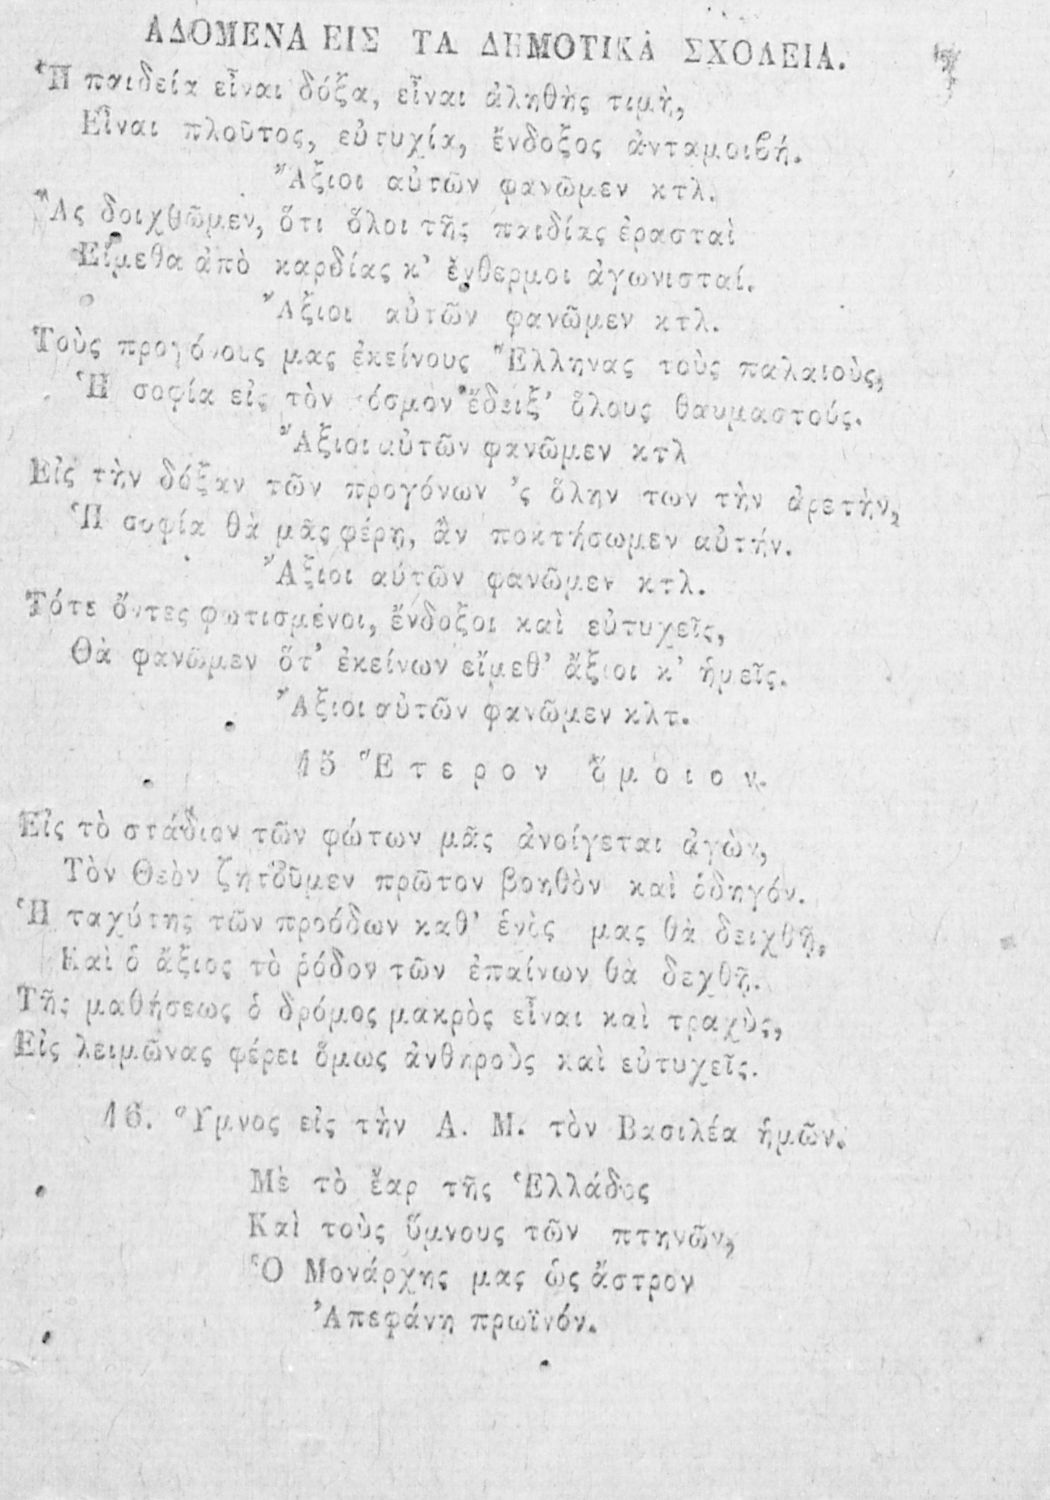 ΑΔΟΜΕΝΑ ΕΙΣ ΤΑ ΔΗΜΟΤΙΚΑ ΣΧΟΛΕΙΑ.
Ἡ παιδεία εἶναι δόξα, εἶναι ἀληθὴς τιμὴ,
Εἶναι πλοῦτος, εὐτυχία, ἔνδοξος ἀνταμοιβή.
Ἄξιοι αὐτῶν φανῶμεν κτλ.
Ἂς δοιχθῶμεν, ὅτι ὅλοι τῆς παιδίας ἐρασταὶ
Εἴμεθα ἀπὸ καρδίας κ' ἔνθερμοι ἀγωνισταί.
Ἄξιοι αὐτῶν φανῶμεν κτλ.
Τοὺς προγόνους μας ἐκείνους Ἕλληνας τοὺς παλαιοὺς,
Ἡ σοφία εἰς τὸν κόσμον ἔδειξ' ὅλους θαυμαστούς.
Ἄξιοι αὐτῶν φανῶμεν κτλ
Εἰς τὴν δόξαν τῶν προγόνων 'ς ὅλην των τὴν ἀρετὴν,
Ἡ σοφία θὰ μᾶς φέρῃ, ἂν ποκτήσωμεν αὐτήν.
Ἄξιοι αὐτῶν φανῶμεν κτλ.
Τότε ὄντες φωτισμένοι, ἔνδοξοι καὶ εὐτυχεῖς,
Θὰ φανῶμεν ὅτ' ἐκείνων εἴμεθ' ἄξιοι κ' ἡμεῖς.
Ἄξιοι αὐτῶν φανῶμεν κλτ.
15 Ἕτερον ὅμοιον.
Εἰς τὸ στάδιον τῶν φώτων μᾶς ἀνοίγεται ἀγὼν,
Τὸν Θεὸν ζητοῦμεν πρῶτον βοηθὸν καὶ ὁδηγόν.
Ἡ ταχύτης τῶν προόδων καθ' ἑνὸς μας θὰ δειχθῇ,
Καὶ ὁ ἄξιος τὸ ῥόδον τῶν ἐπαίνων θὰ δεχθῇ.
Τῆς μαθήσεως ὁ δρόμος μακρὸς εἶναι καὶ τραχὺς,
Εἰς λειμῶνας φέρει ὅμως ἀνθηροὺς καὶ εὐτυχεῖς.
16. Ὕμνος εἰς τὴν Α. Μ. τὸν Βασιλέα ἡμῶν.
Μὲ τὸ ἔαρ τῆς Ἑλλάδος
Καὶ τοὺς ὕμνους τῶν πτηνῶν,
Ὁ Μονάρχης μας ὡς ἄστρον
Ἀπεφάνη πρωϊνόν.